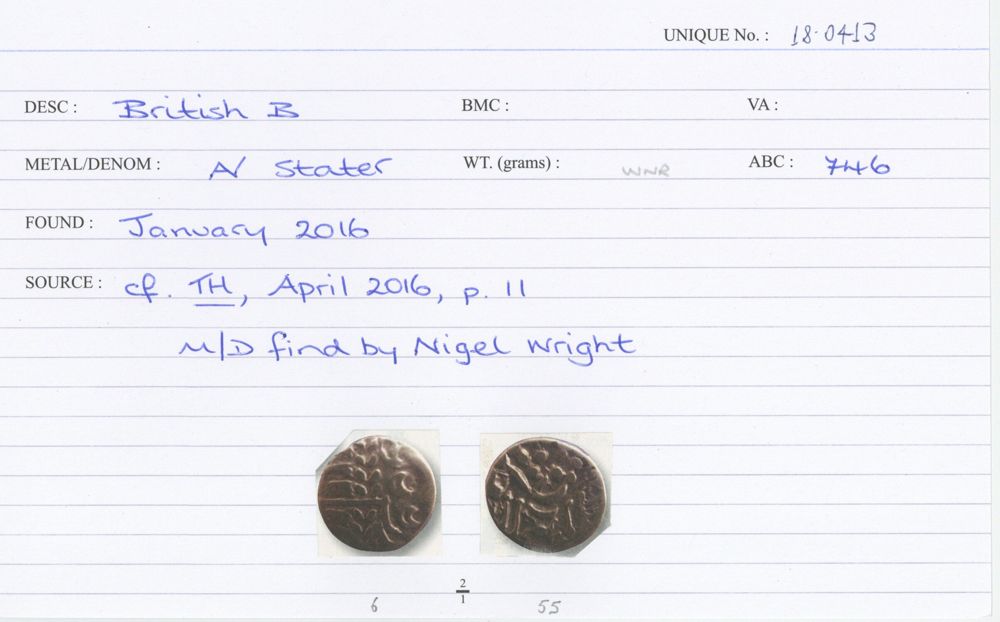 UNIQUE No. : 18.0413
DESC : British B BMC : VA :
METAL/DENOM : A/ Stater WT. (grams) : WNR ABC : 746
FOUND : January 2016
SOURCE : cf. TH, April 2016, p. 11
M/D find by Nigel Wright
2
1
6 55